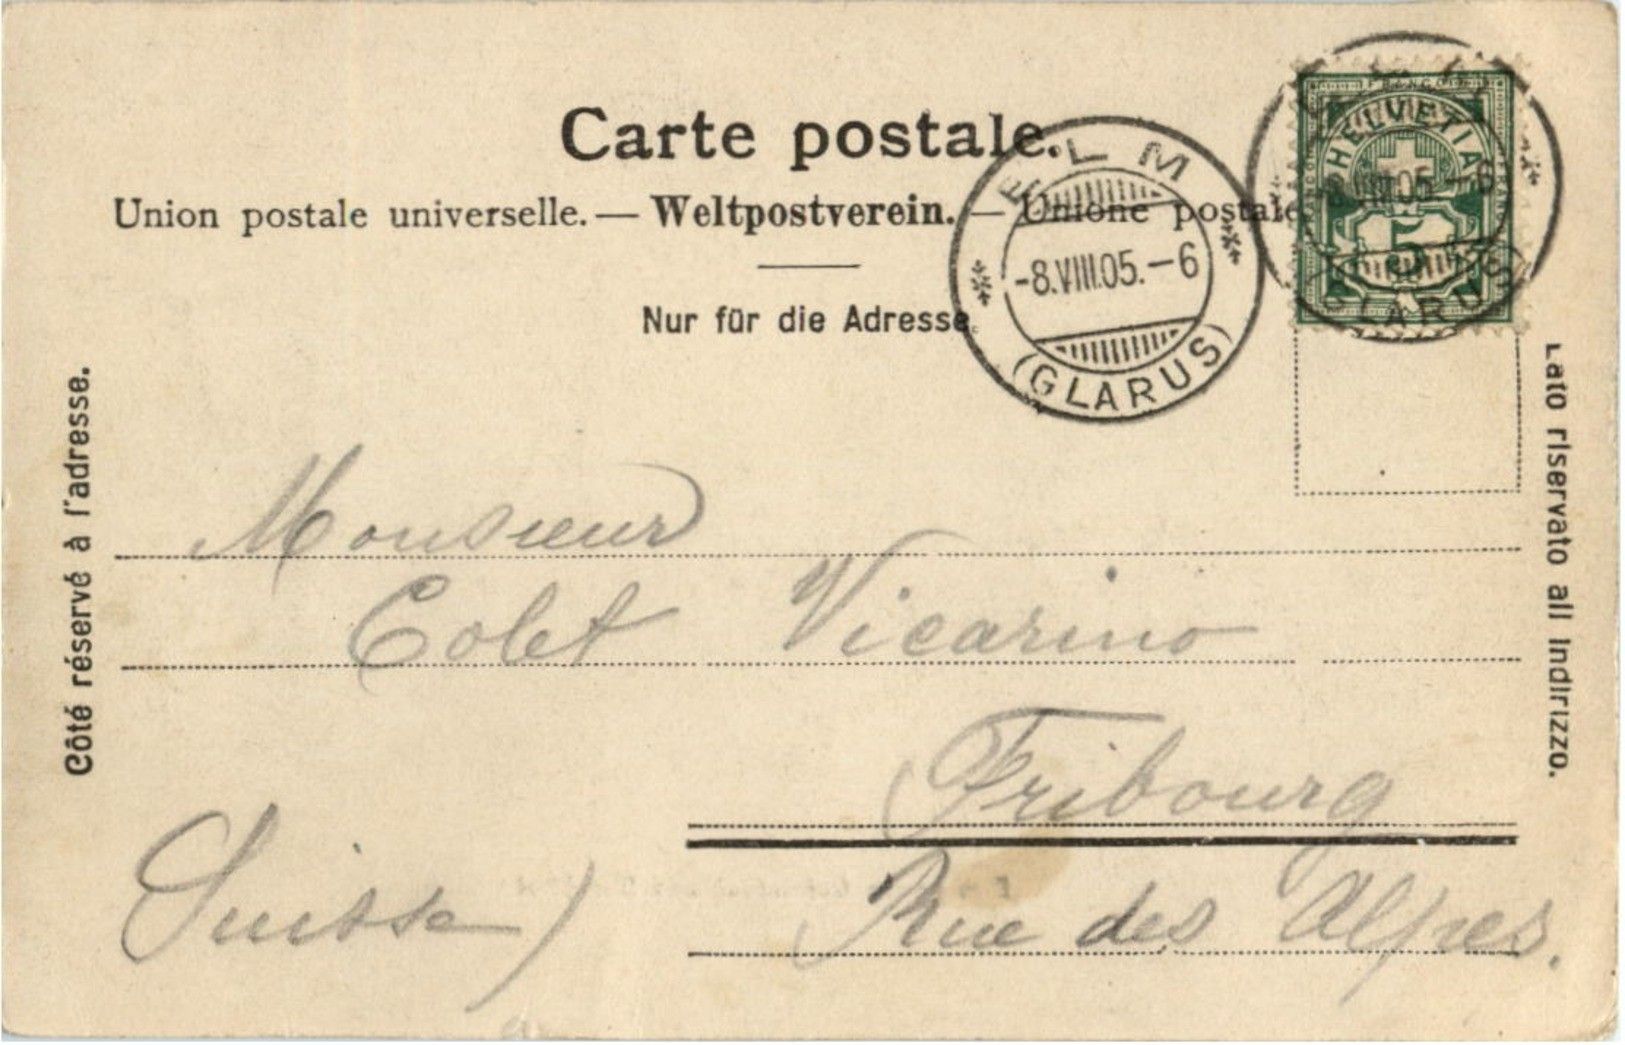 Carte postale.
Union postale universelle. — Weltpostverein. — Unione postale
Nur für die Adresse.
Côté réservé à l'adresse.
Lato riservato all indirizzo.
ELM
-8.VIII.05.-6
(GLARUS)
HELVETIA
5
VIII.05.-6
GLARUS)
Monsieur
Colet Vicarino
Fribourg
Rue des Alpes.
Suisse)